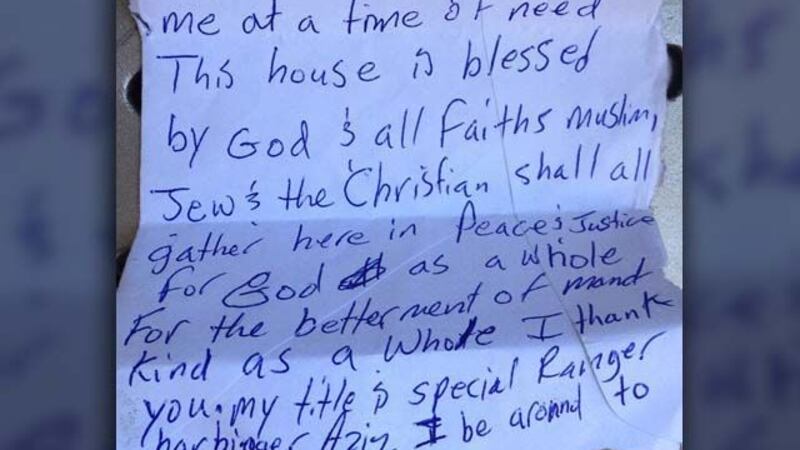 me at a time of need
This house is blessed
by God & all Faiths muslim,
Jew & the Christian shall all
gather here in Peace & Justice
for God as a whole
For the betterment of mand
kind as a Whole I thank
you. my title is special Rainger
harbinger Aziz. I be around to